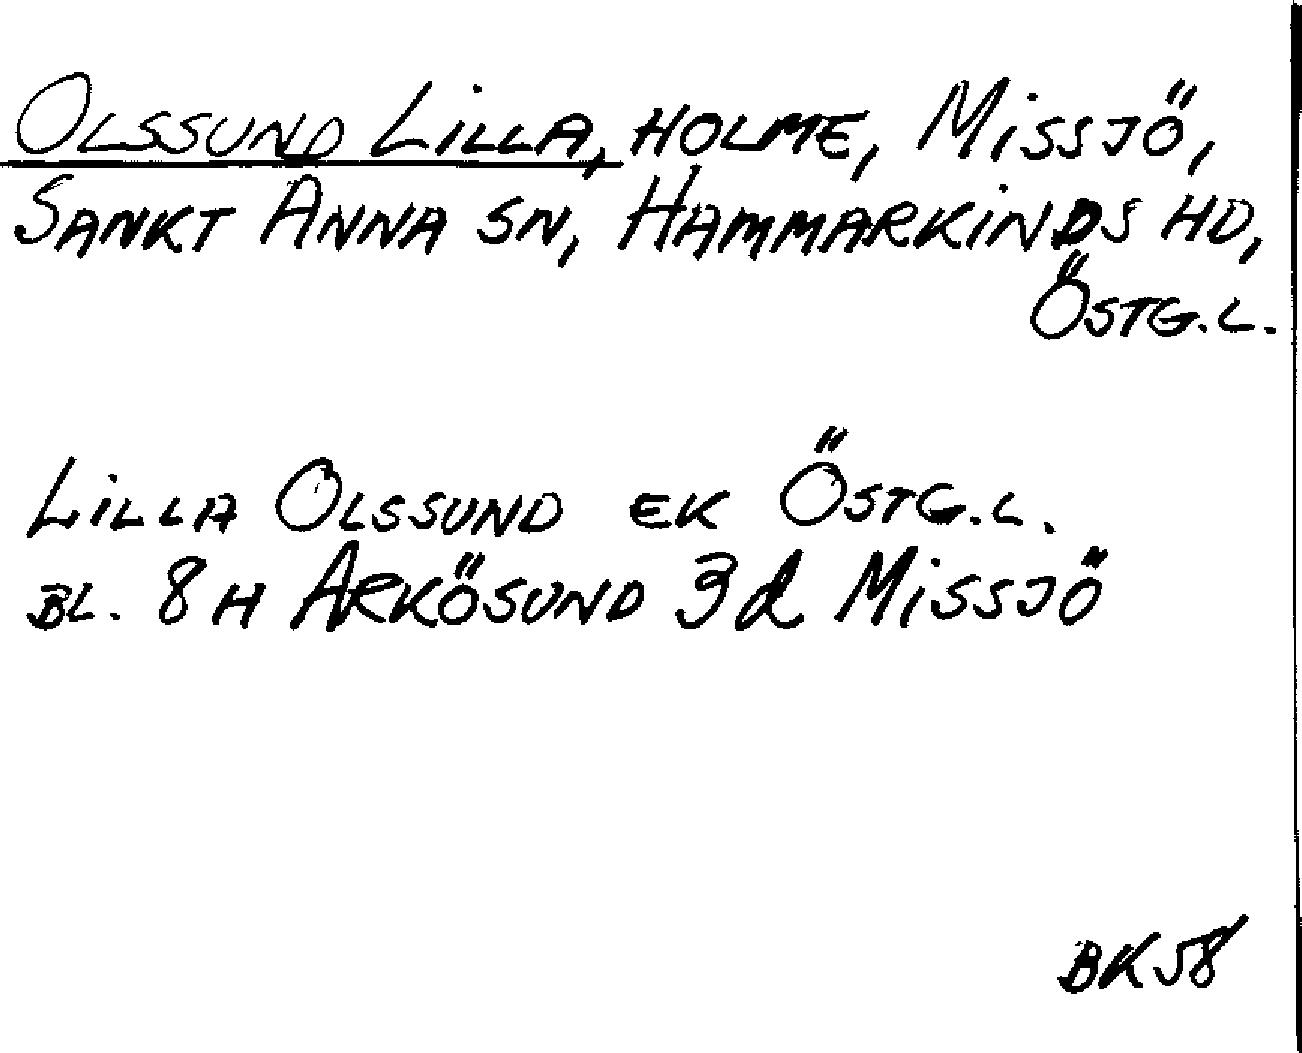 OLSSUND LILLA, HOLME, MISSJÖ,
SANKT ANNA SN, HAMMARKINDS HD,
ÖSTG.L.
LILLA OLSSUND EK ÖSTG.L.
BL. 8H ARKÖSUND 3d MISSJÖ
BK58